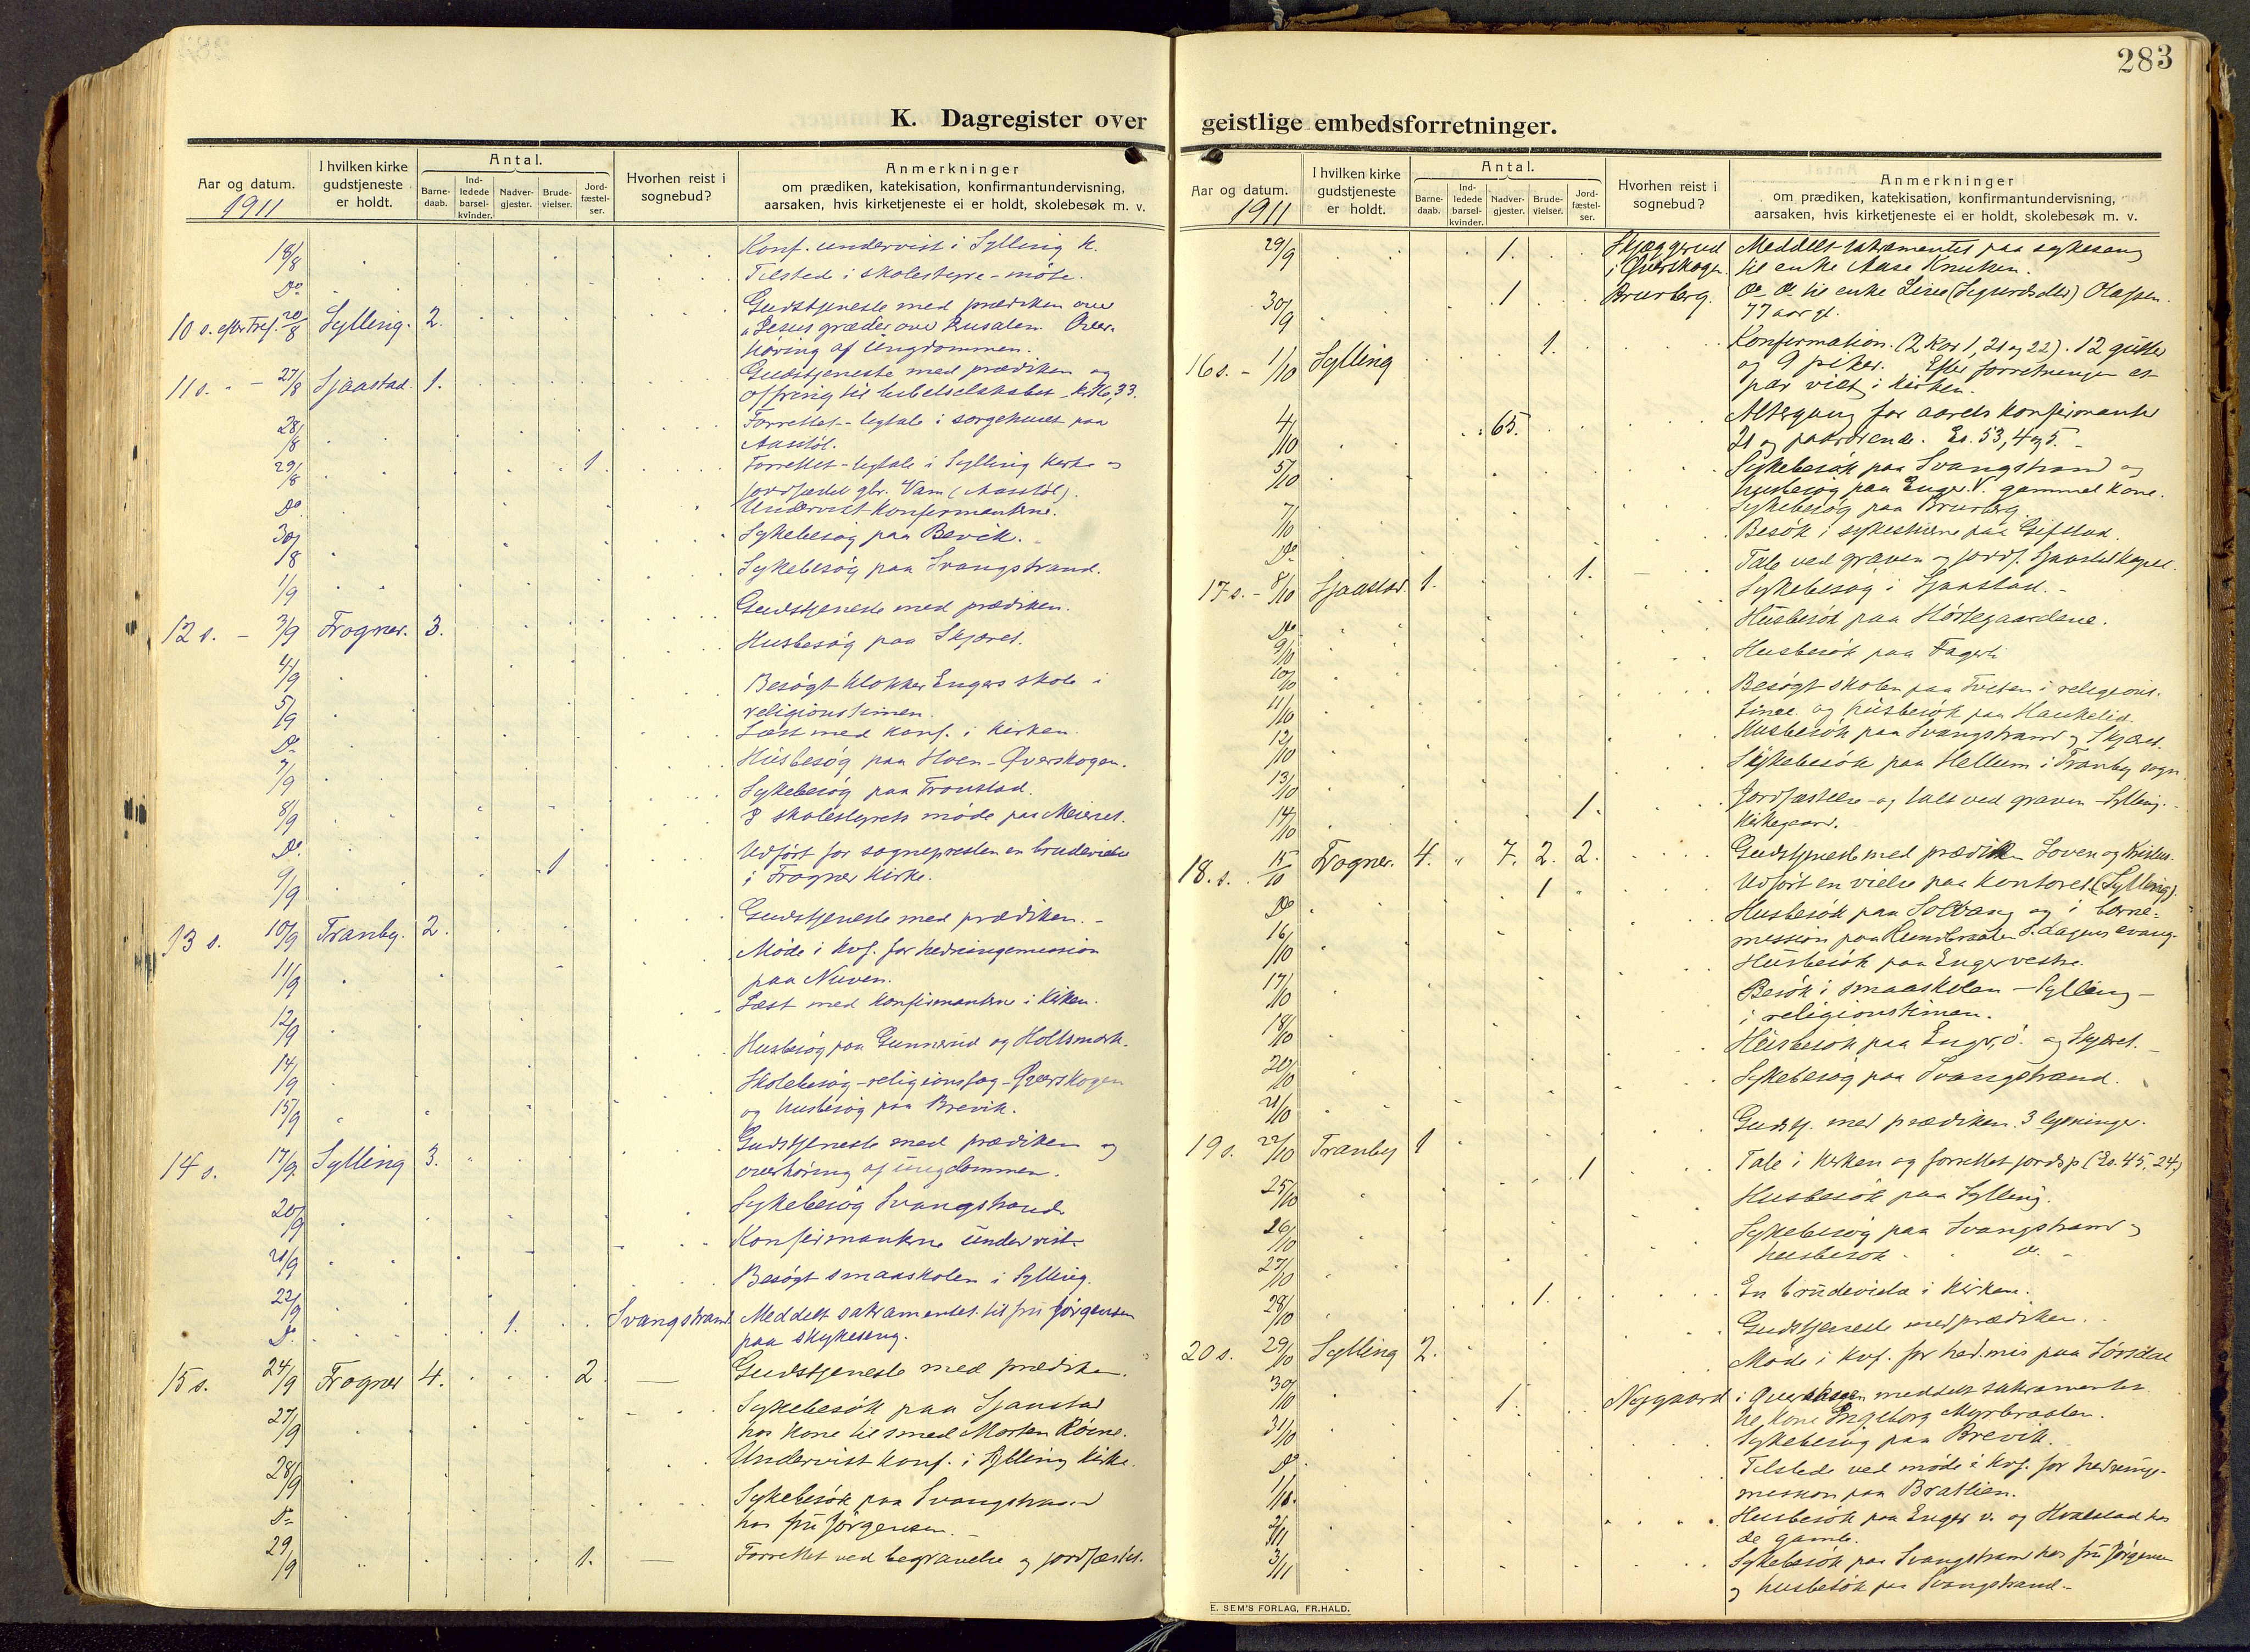 283
K. Dagregister over
Aar og datum.
1911
I hvilken kirke
gudstjeneste
er holdt.
Antal.
Barne-
daab.
Ind-
ledede
barsel-
kvinder.
Nadver-
gjester.
Brude-
vielser.
Jord-
fæstel-
ser.
Hvorhen reist i
sognebud?
Anmerkninger
om prædiken, katekisation, konfirmantundervisning,
aarsaken, hvis kirketjeneste ei er holdt, skolebesøk m. v.
18/8 Konf. undervist i Sylling K.
Do Tilsted i skolestyre-möte.
10 s. efter Tref. 20/8 Sylling. 2. Gudstjeneste med prædiken over
Jesus græder over Jerusalem. Over-
höring af ungdommen.
11 s. - 27/8 Sjaastad. 1. Gudstjeneste med prædiken og
offring til bibelselskabet kr. 16,33.
28/8 Forrettet ligtale i sorgehuset paa
Aasstöl.
29/8 1. Forrettet ligtale i Sylling kirke og
jordfæstet gbr. Vam (Aasstöl).
Do Undervist konfirmanterne.
30/8 Sykebesög paa Bevik.
1/9 Sykebesög paa Svangstrand.
12 s. - 3/9 Frogner. 3. Gudstjeneste med prædiken.
4/9 Husbesög paa Skjæret.
5/9 Besögt klokker Engers skole i
religionstimen.
Do Læst med konf. i kirken.
7/9 Husbesög paa Hoen - Överskogen.
8/9 Sykebesög paa Tronstad.
Do I skolestyrets møde paa Meieriet.
9/9 1 Udført for sognepresten en brudevielse
i Frogner kirke.
13 s. 10/9 Tranby. 2. Gudstjeneste med prædiken.
11/9 Møde i kvf. for hedningemission
paa Nuven.
12/9 Læst med konfirmanterne i kirken.
14/9 Husbesög paa Gunnerud og Holtsmark.
15/9 Skolebesøg - religionsfag - Överskogen
og husbesøg paa Brevik.
14 s. 17/9 Sylling 3. Gudstjeneste med prædiken og
overhöring af ungdommen.
20/9 Sykebesög Svangstrand
21/9 Konfirmanterne undervist.
22/9 Besögt smaaskolen i Sylling.
Do 1. Svangstrand. Meddelt sakramentet til fru Jörgensen
paa sykeseng.
15 s. 24/9 Frogner 4. 2 Gudstjeneste med prædiken.
27/9 Sykebesök paa Sjaastad
hos kone til smed Morten Röine.
28/9 Undervist konf. i Sylling kirke.
Do Sykebesök paa Svangstrand
hos fru Jörgensen.
29/9 1. Forrettet ved begravelse og jordfæstet.
geistlige embedsforretninger.
Aar og datum.
1911
I hvilken kirke
gudstjeneste
er holdt.
Antal.
Barne-
daab.
Ind-
ledede
barsel-
kvinder.
Nadver-
gjester.
Brude-
vielser.
Jord-
fæstel-
ser.
Hvorhen reist i
sognebud?
Anmerkninger
om prædiken, katekisation, konfirmantundervisning,
aarsaken, hvis kirketjeneste ei er holdt, skolebesøk m. v.
29/9 1. Skjæggerud Meddelt sakramentet paa sykeseng
i Överskogen. til enke Aase Knutsen.
30/9 1 Brurberg. Do Do til enke Lise (Sigurdsdtr) Olafsen.
77 aar gl.
16 s. - 1/10 Sylling 1. Konfirmation. (2 Kor 1, 21 og 22). 12 gutter
og 9 piker. Efter forretningen et
par viet i kirken.
4/10 65. Altergang for aarets konfirmanter
21 og paarörende. Es. 53, 4 og 5.
5/10 Sykebesök paa Svangstrand og
husbesög paa Enger V. gammel kone.
7/10 Sykebesög paa Brurberg.
Do Besök i sykestuerne paa Gifstad.
17 s. - 8/10 Sjaastad. 1. 1. Tale ved graven og jordf. Sjaastad kapel.
Do Sykebesøg i Sjaastad.
9/10 Husbesök paa Hörtegaardene.
10/10 Husbesök paa Fagerli
11/10 Besögt skolen paa Tveten i religions-
time og husbesök paa Haukelid.
12/10 Husbesök paa Svangstrand og Skjæret.
13/10 Sykebesök paa Hellum i Tranby sogn
14/10 1. Jordfæstelse og tale ved graven - Sylling
kirkegaard.
18. s. 15/10 Frogner. 4. 7. 2. 2. Gudstjeneste med prædiken Loven og Kristus.
Do 1 Udfört en vielse paa kontoret (Sylling).
16/10 Husbesök paa Solvang og i barne-
mission paa S. dagens evang.
17/10 Husbesök paa Enger vestre.
18/10 Besök i smaaskolen - Sylling -
i religionstimen.
20/10 Husbesök paa Enger, ö. og Skjæret.
21/10 Sykebesög paa Svangstrand.
19 s. 22/10 Tranby 1 Gudstj. med prædiken. 3 lysninger.
25/10 1 Tale i kirken og forrettet jordsp. (Es. 45, 24)
26/10 Husbesök paa Sylling.
27/10 Sykebesög paa Svangstrand og
husbesök Do
28/10 1. En brudevielse i kirken.
20 s. 29/10 Sylling 2. Gudstjeneste med prædiken.
30/10 Møde i kvf. for hed.mis paa Sörsdal
31/10 1. Nygaard i Överskogen meddelt sakramentet
til kone Ingeborg Myrbraaten.
Do Sykebesög paa Brevik.
1/11. Tilstede ved möde i kvf. for hednings-
mission paa Bratlien.
2/11 Husbesök paa Enger v. og Hvalstad hos
de gamle.
3/11 Sykebesök paa Svangstrand hos fru Jörgensen
og husbesök paa Svangstrand.
E. SEM'S FORLAG, FR.HALD.